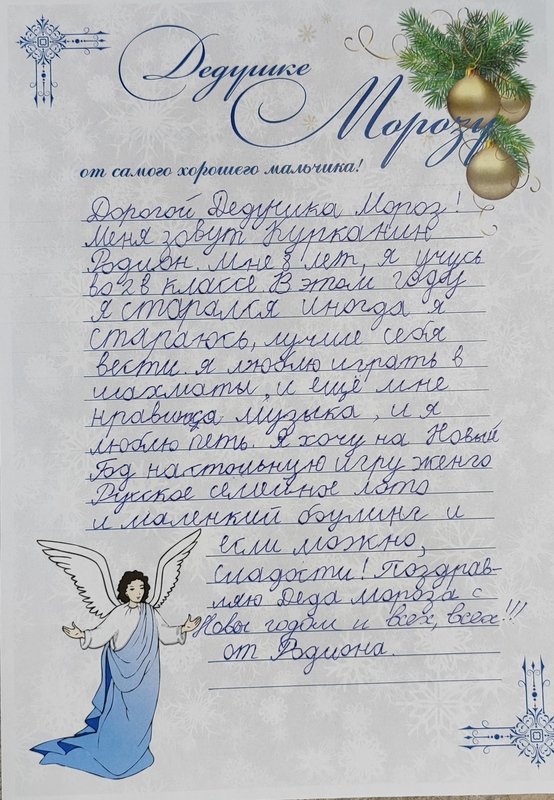 Дедушке
Морозу
от самого хорошего мальчика!
Дорогой Дедушка Мороз!
Меня зовут Курканин
Родион. мне 8 лет, я учусь
во 2 в классе. В этом году
я старался иногда я
стараюсь, лучше себя
вести. я люблю играть в
шахматы, и ещё мне
нравитца музыка, и я
люблю петь. Я хочу на Новый
Год настольную игру женга
Русское семейное лото
и маленкий боулинг и
если можно,
сладости! Поздрав-
ляю Деда мороза с
Новы годом и всех, всех!!!
от Родиона.